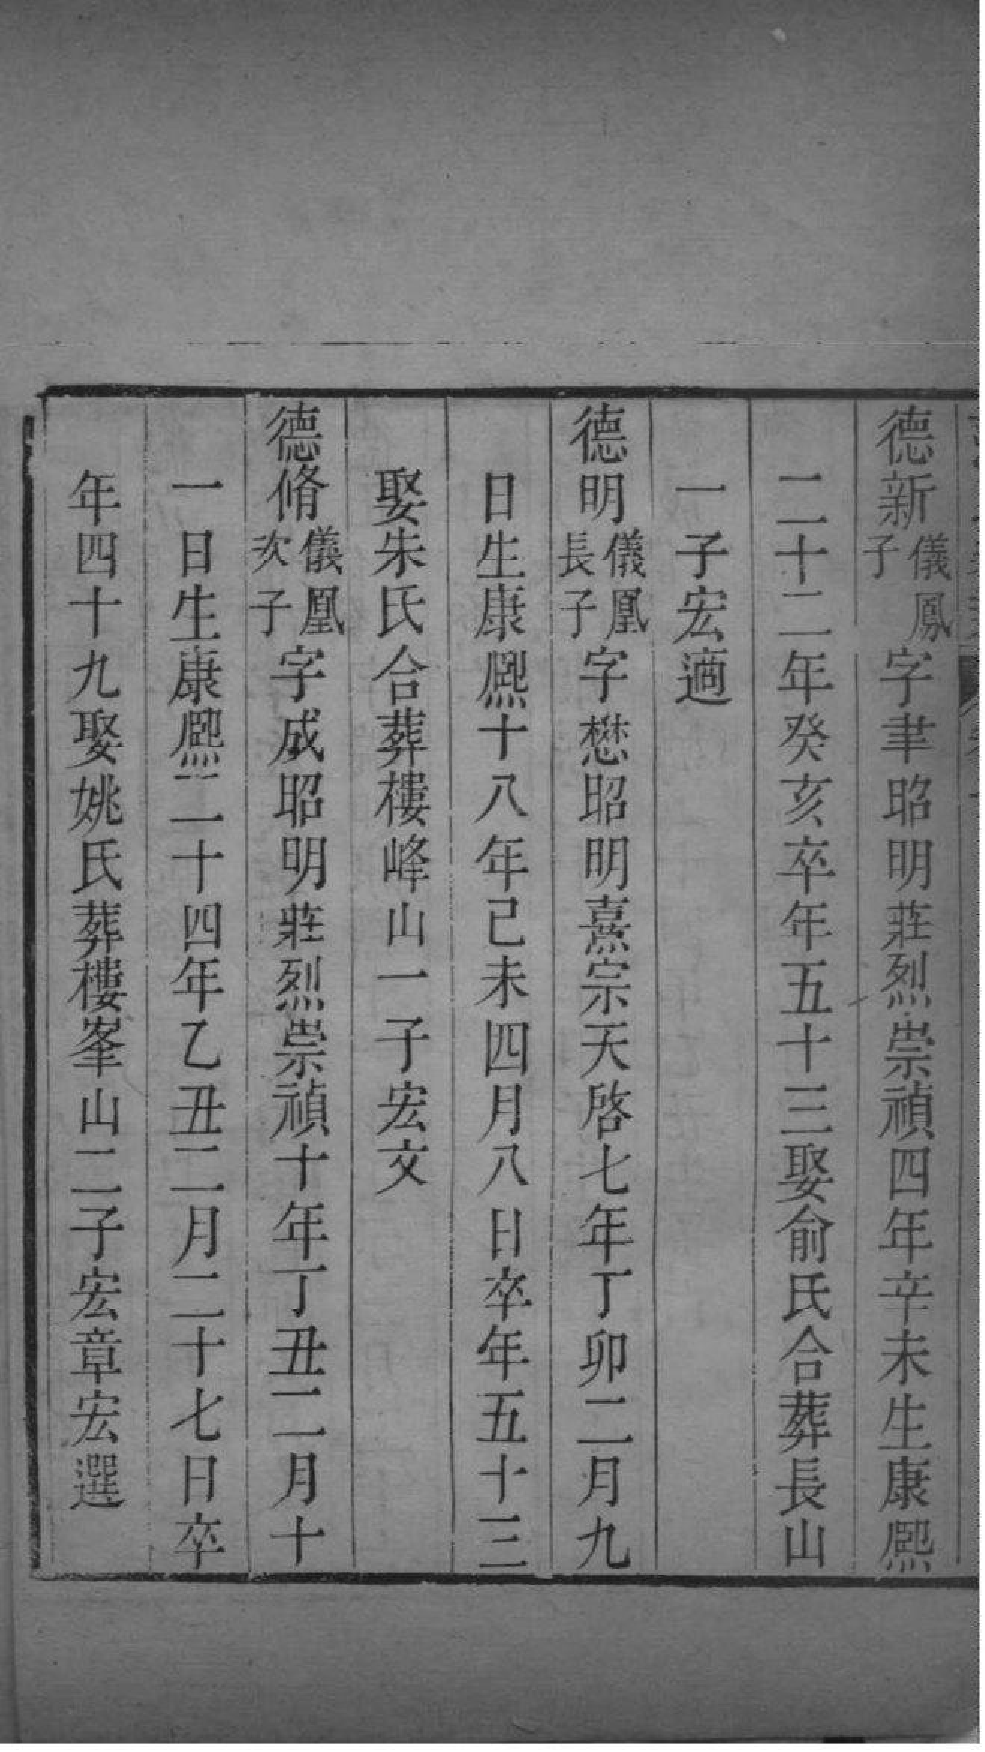 德新儀鳳子字聿昭明莊烈崇禎四年辛未生康熙
二十二年癸亥卒年五十三娶俞氏合葬長山
一子宏適
德明儀凰長子字懋昭明熹宗天啓七年丁卯二月九
日生康熙十八年己未四月八日卒年五十三
娶朱氏合葬樓峰山一子宏文
德脩儀凰次子字成昭明莊烈崇禎十年丁丑二月十
一日生康熙二十四年乙丑二月二十七日卒
年四十九娶姚氏葬樓峯山二子宏章宏選